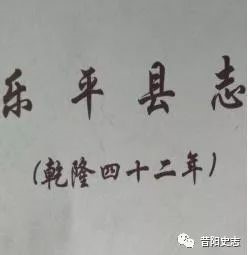 乐平县志
(乾隆四十二年)
昔阳史志